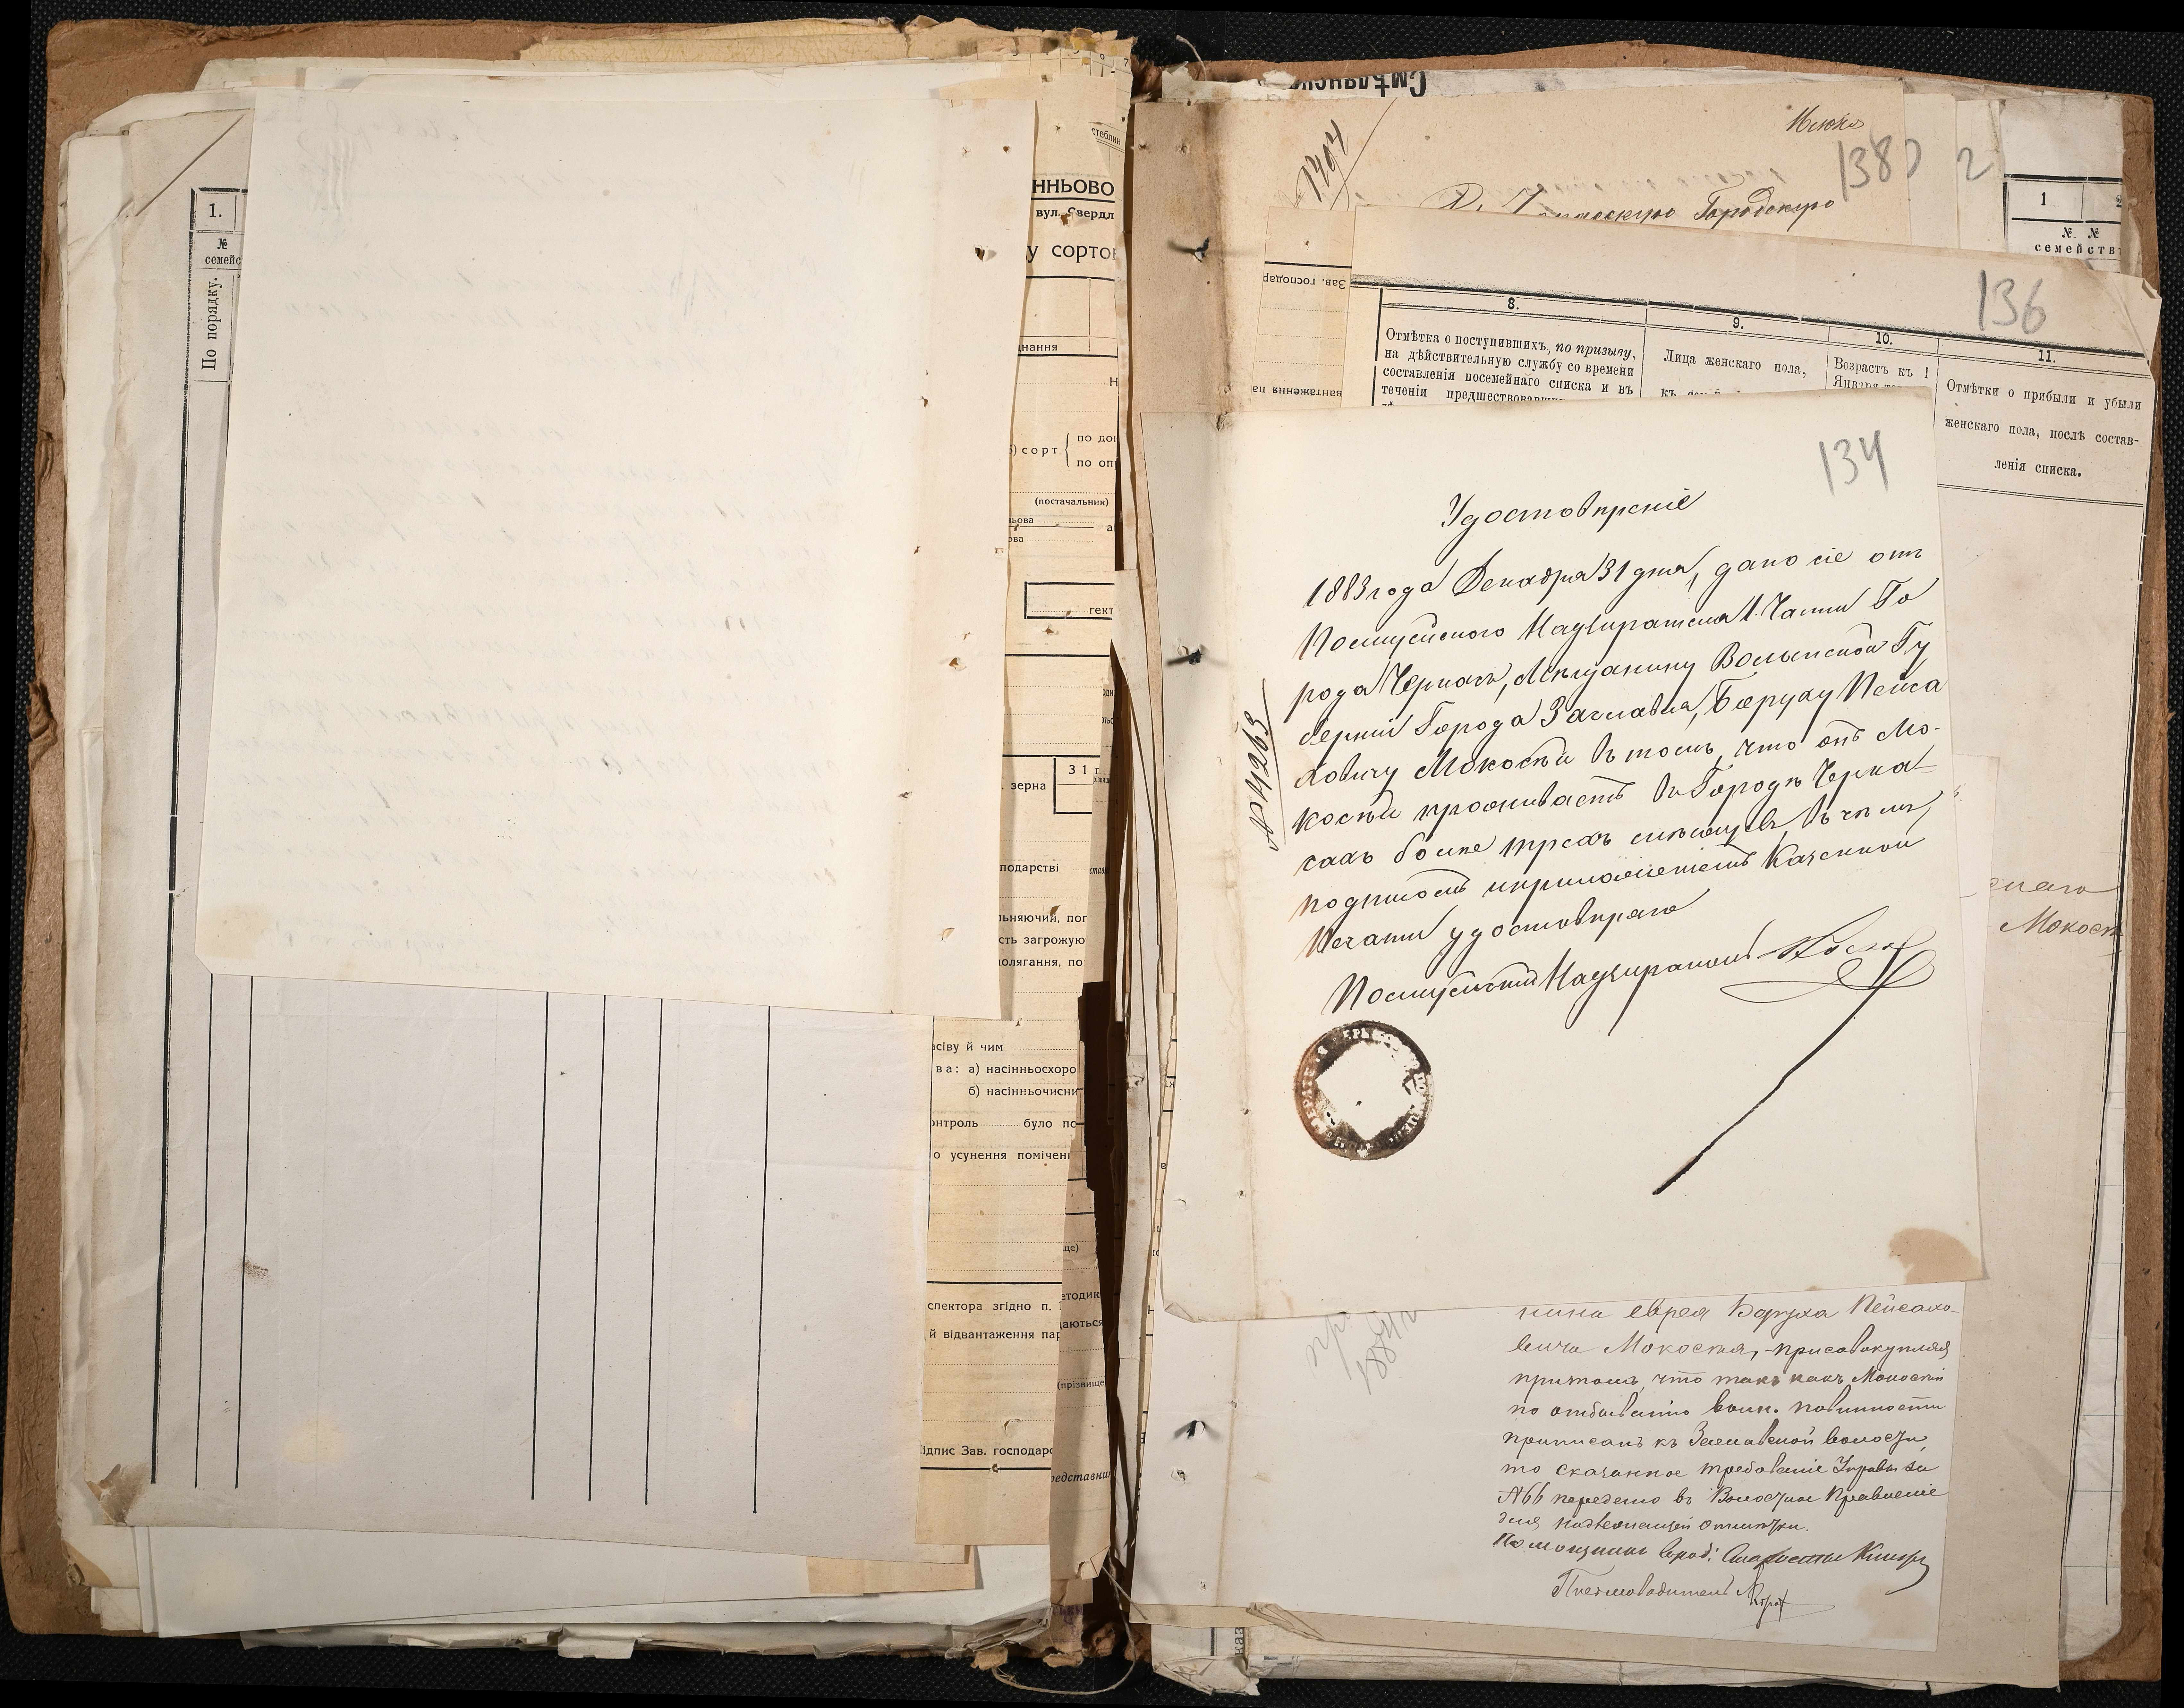 1.
№
семейс
По порядку.
стеблин
ННЬОВО
вул. Свердл
у сорто
нання
сорт
по до
по оп
(постачальник)
гект
зерна
31 г
подарстві
льняючий, пог
сть загрожую
олягання, по
асіву й чим
ва: а) насінньосхоро
б) насінньочисни
онтроль було по
о усунення помічен
це)
спектора згідно п.
етодик
аються
й відвантаження пар
(прізвище
ідпис Зав. господар
редставни
Смѣлянск
1404
Городскую
1380
2
1
№ №
семейств
Зав. господар
вантаження па
136
8.
9.
10.
11.
Отмѣтка о поступившихъ, по призыву,
на дѣйствительную службу со времени
составленія посемейнаго списка и въ
теченіи предшествовавш
Лица женскаго пола,
Возрастъ къ 1
Января
Отмѣтки о прибыли и убыли
женскаго пола, послѣ состав-
ленія списка.
134
Удостовѣреніе
№ 4263
1883 года Декабря 31 дня, дано сіе отъ
Полицейскаго Надзирателя 1 Части Го
рода Черкасъ, Мѣщанину Волынской Гу
берніи Города Заславля, Боруху Пейса
ховичу Мокостѣй въ томъ, что онъ Мо-
костѣй проживаетъ въ Городѣ Черка-
сахъ болѣе трехъ мѣсяцевъ, въ чемъ,
подписомъ и приложеніемъ Казенной
Печати удостовѣряю
Полицейскій Надзиратель
Мокост
нина еврея Боруха Пейсахо-
вича Мокостѣя, присовокупляя
притомъ, что такъ какъ Мокостѣй
по отбыванію воин. повинности
приписанъ къ Заславской волости,
то сказанное требованіе Управы за
№ 66 передано въ Волостное Правленіе
для надлежащей отмѣтки.
Письмоводитель